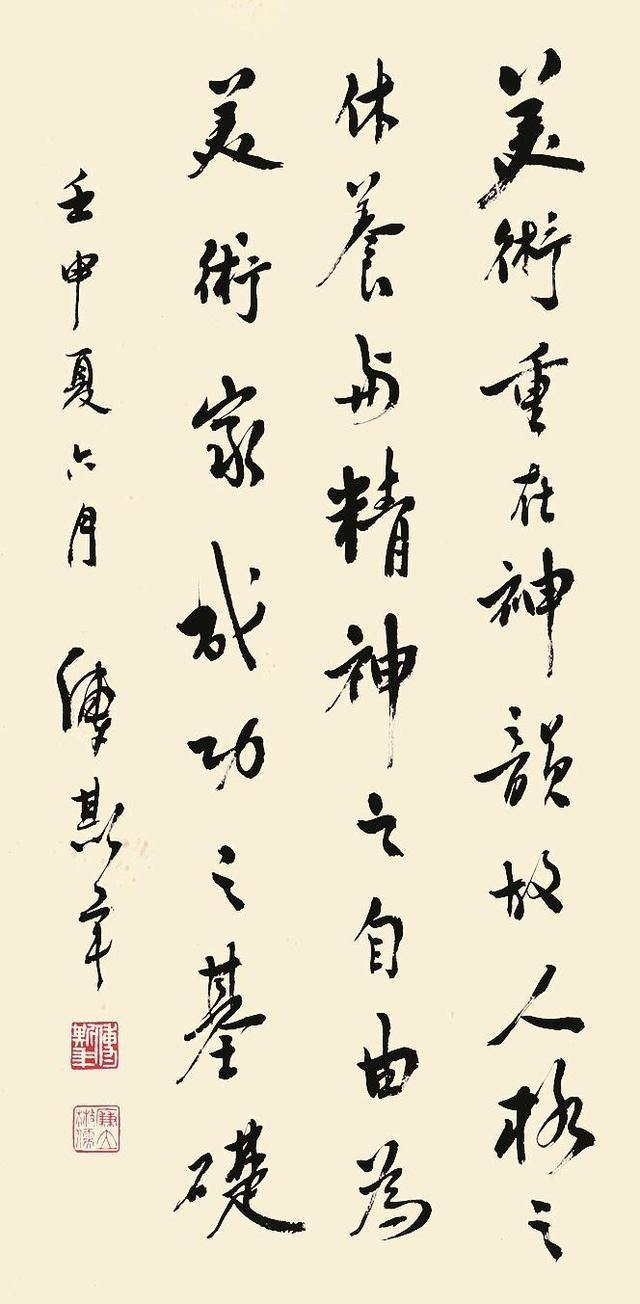 美術重在神韻故人格之
休養與精神之自由為
美術家成功之基礎
壬申夏六月 傅斯年
傅斯年